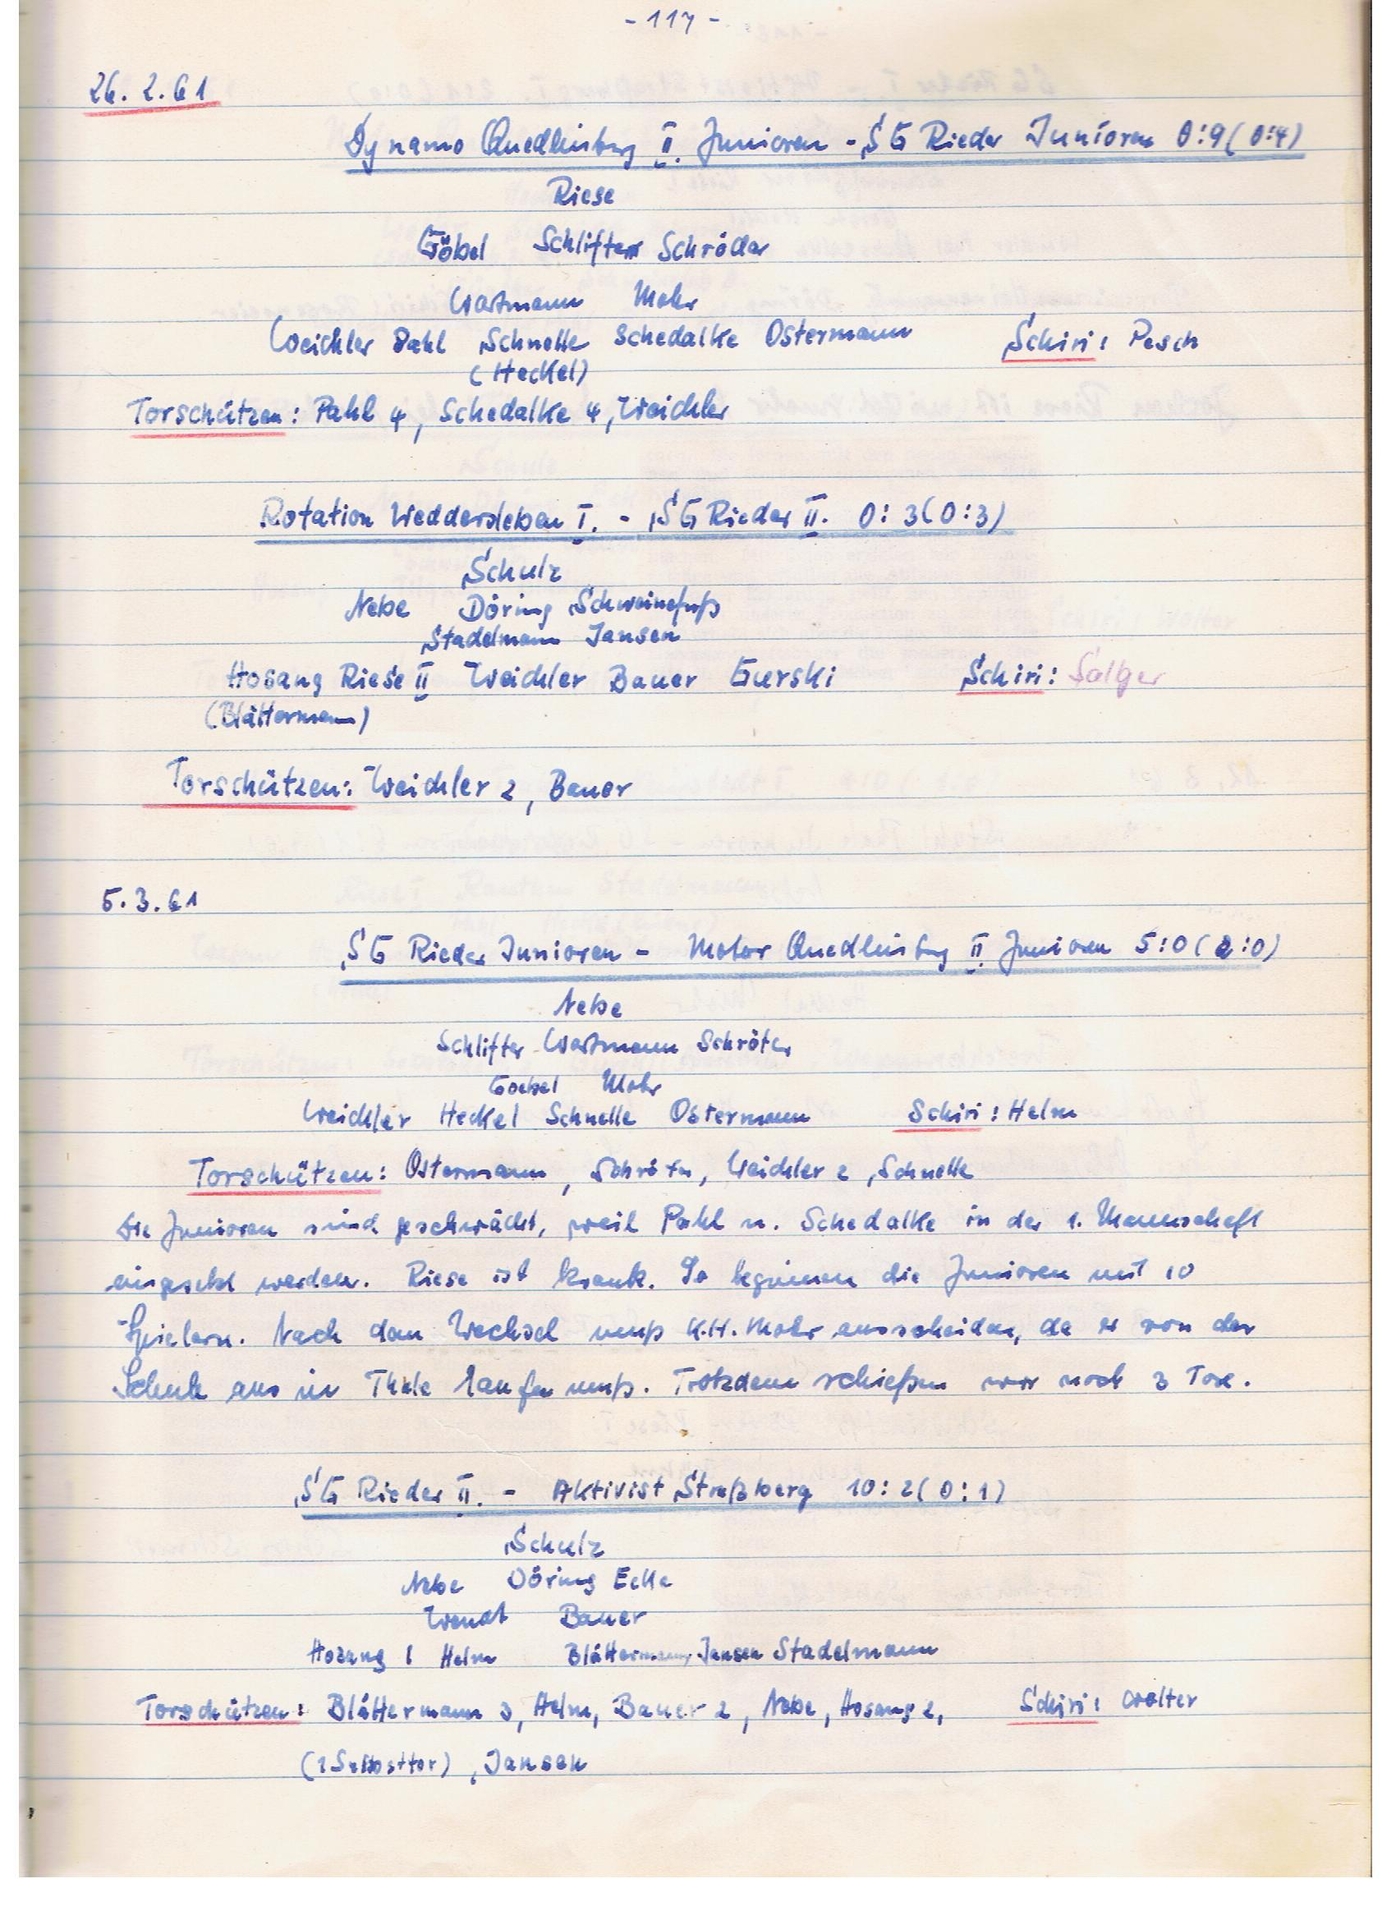 - 117 -
26. 2. 61
Dynamo Quedlinburg II. Junioren - SG Rieder Junioren 0:9 (0:4)
Riese
Göbel Schlifter Schröder
Wartmann Mohr
Weichler Pahl Schnelle Schedalke Ostermann Schiri: Pesch
(Heckel)
Torschützen: Pahl 4, Schedalke 4, Weichler
Rotation Weddersleben I. - SG Rieder II. 0:3 (0:3)
Schulz
Nebe Döring Schweinefuß
Stadelmann Jansen
Hosang Riese II Weichler Bauer Gurski Schiri: Salger
(Blättermann)
Torschützen: Weichler 2, Bauer
5. 3. 61
SG Rieder Junioren - Motor Quedlinburg II Junioren 5:0 (2:0)
Nebe
Schlifter Wartmann Schröter
Goebel Mohr
Weichler Heckel Schnelle Ostermann Schiri: Helm
Torschützen: Ostermann, Schröter, Weichler 2, Schnelle
Die Junioren sind geschwächt, weil Pahl u. Schedalke in der 1. Mannschaft
eingesetzt werden. Riese ist krank. So beginnen die Junioren mit 10
Spielern. Nach dem Wechsel muß K.H. Mohr ausscheiden, da er von der
Schule aus in Thale laufen muß. Trotzdem schießen wir noch 3 Tore.
SG Rieder II. - Aktivist Straßberg 10:2 (0:1)
Schulz
Nebe Döring Ecke
Wendt Bauer
Hosang I Helm Blättermann Jansen Stadelmann
Torschützen: Blättermann 3, Helm, Bauer 2, Nebe, Hosang 2, Schiri: Wolter
(1 Selbsttor), Jansen